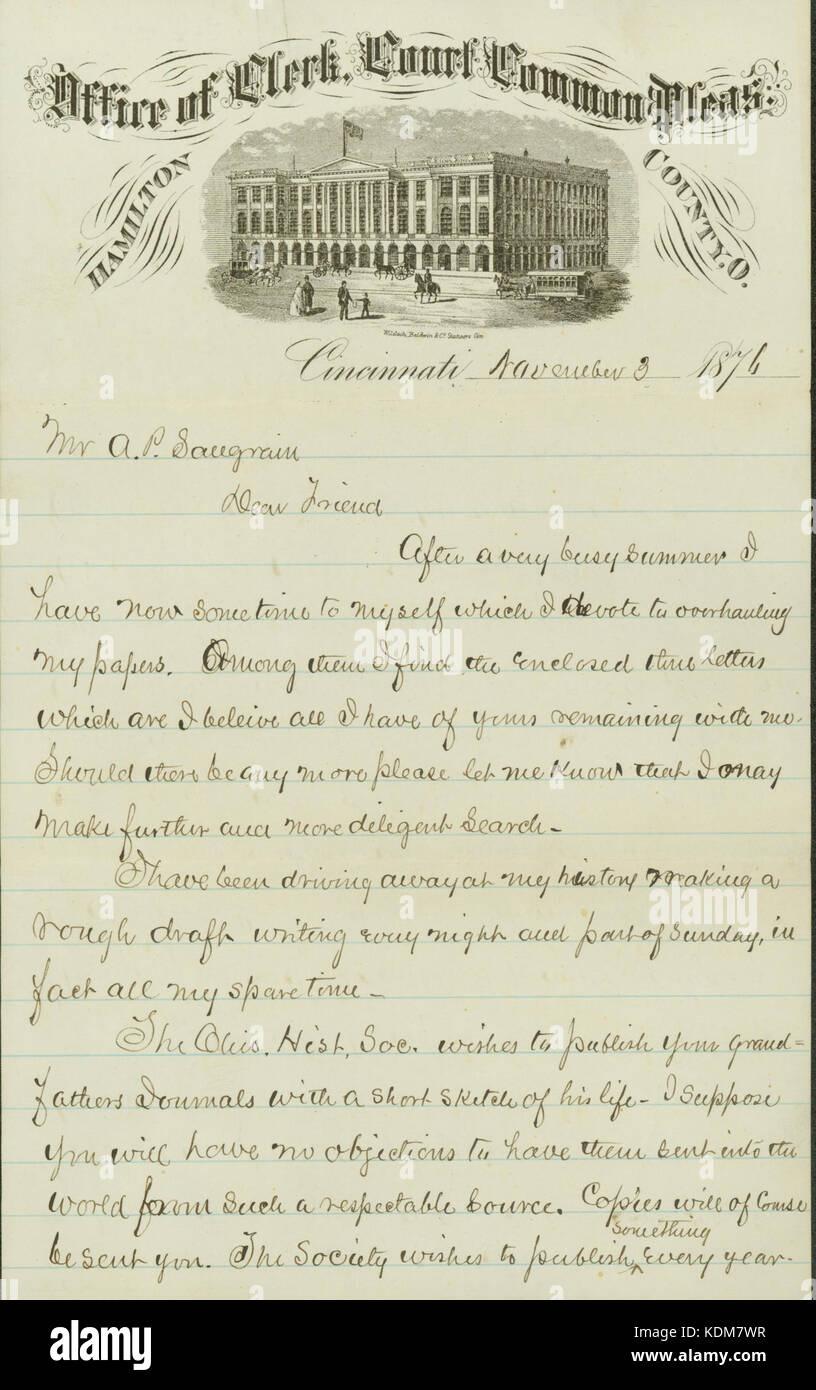 Office of Clerk, Court Common Pleas,
HAMILTON COUNTY, O.
Wilstach, Baldwin & Co. Stationers Cin.
Cincinnati, November 3 1876
Mr A. P. Saugrain
Dear Friend
After a very busy summer I
have now some time to myself which I devote to overhauling
my papers. Among them I find the enclosed three letters
which are I beleive all I have of yours remaining with me.
Should there be any more please let me know that I may
make further and more diligent search -
I have been driving away at my history making a
rough draft writing every night and part of Sunday, in
fact all my spare time -
The Ohio. Hist. Soc. wishes to publish your Grand=
fathers Journals with a short sketch of his life - I suppose
you will have no objections to have them sent into the
world from such a respectable source. Copies will of course
be sent you. The Society wishes to publish ^something every year.
alamy stock photo
KDM7WR
www.alamy.com